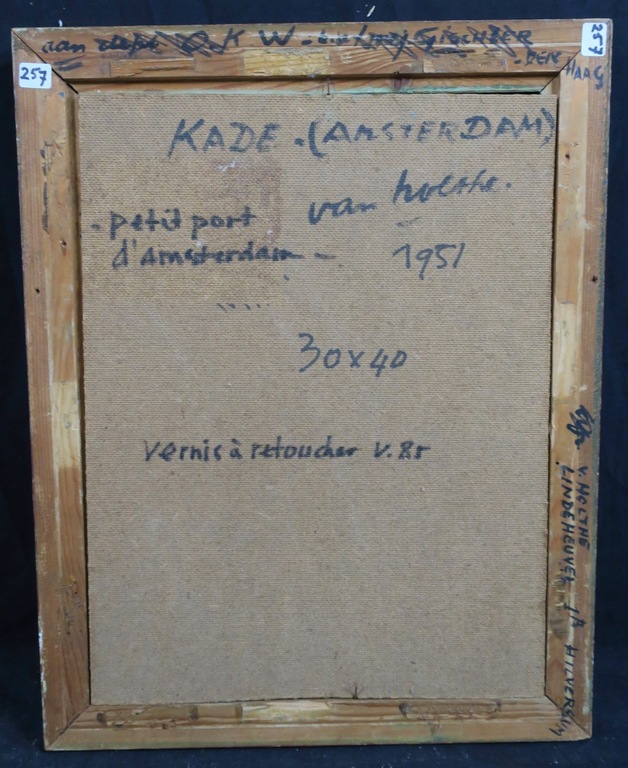 aan K W.
DEN HAAG
257
257
KADE. (AMSTERDAM)
van holthe.
petit port
d'Amsterdam 1951
30x40
vernis à retoucher v.
V. HOLTHE
LINDEHEUVEL 1A HILVERSUM